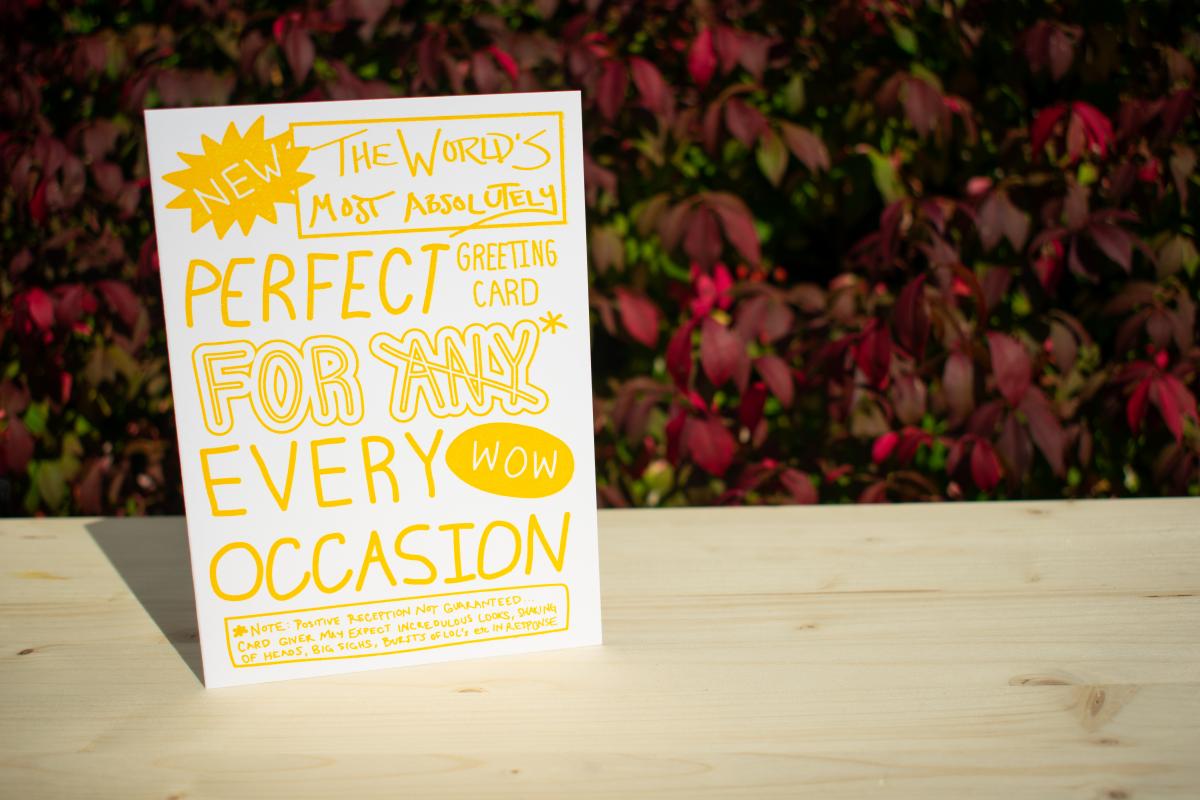 NEW
THE WORLD'S
MOST ABSOLUTELY
PERFECT
GREETING
CARD
FOR ANY*
EVERY
WOW
OCCASION
*NOTE: POSITIVE RECEPTION NOT GUARANTEED...
CARD GIVER MAY EXPECT INCREDULOUS LOOKS, SHAKING
OF HEADS, BIG SIGHS, BURSTS OF LOL'S etc IN RESPONSE